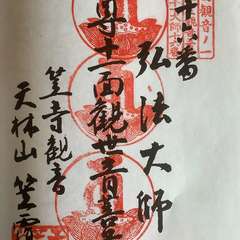 十六番
弘法大師
尊十一面観世音菩
笠寺観音
天林山 笠覆